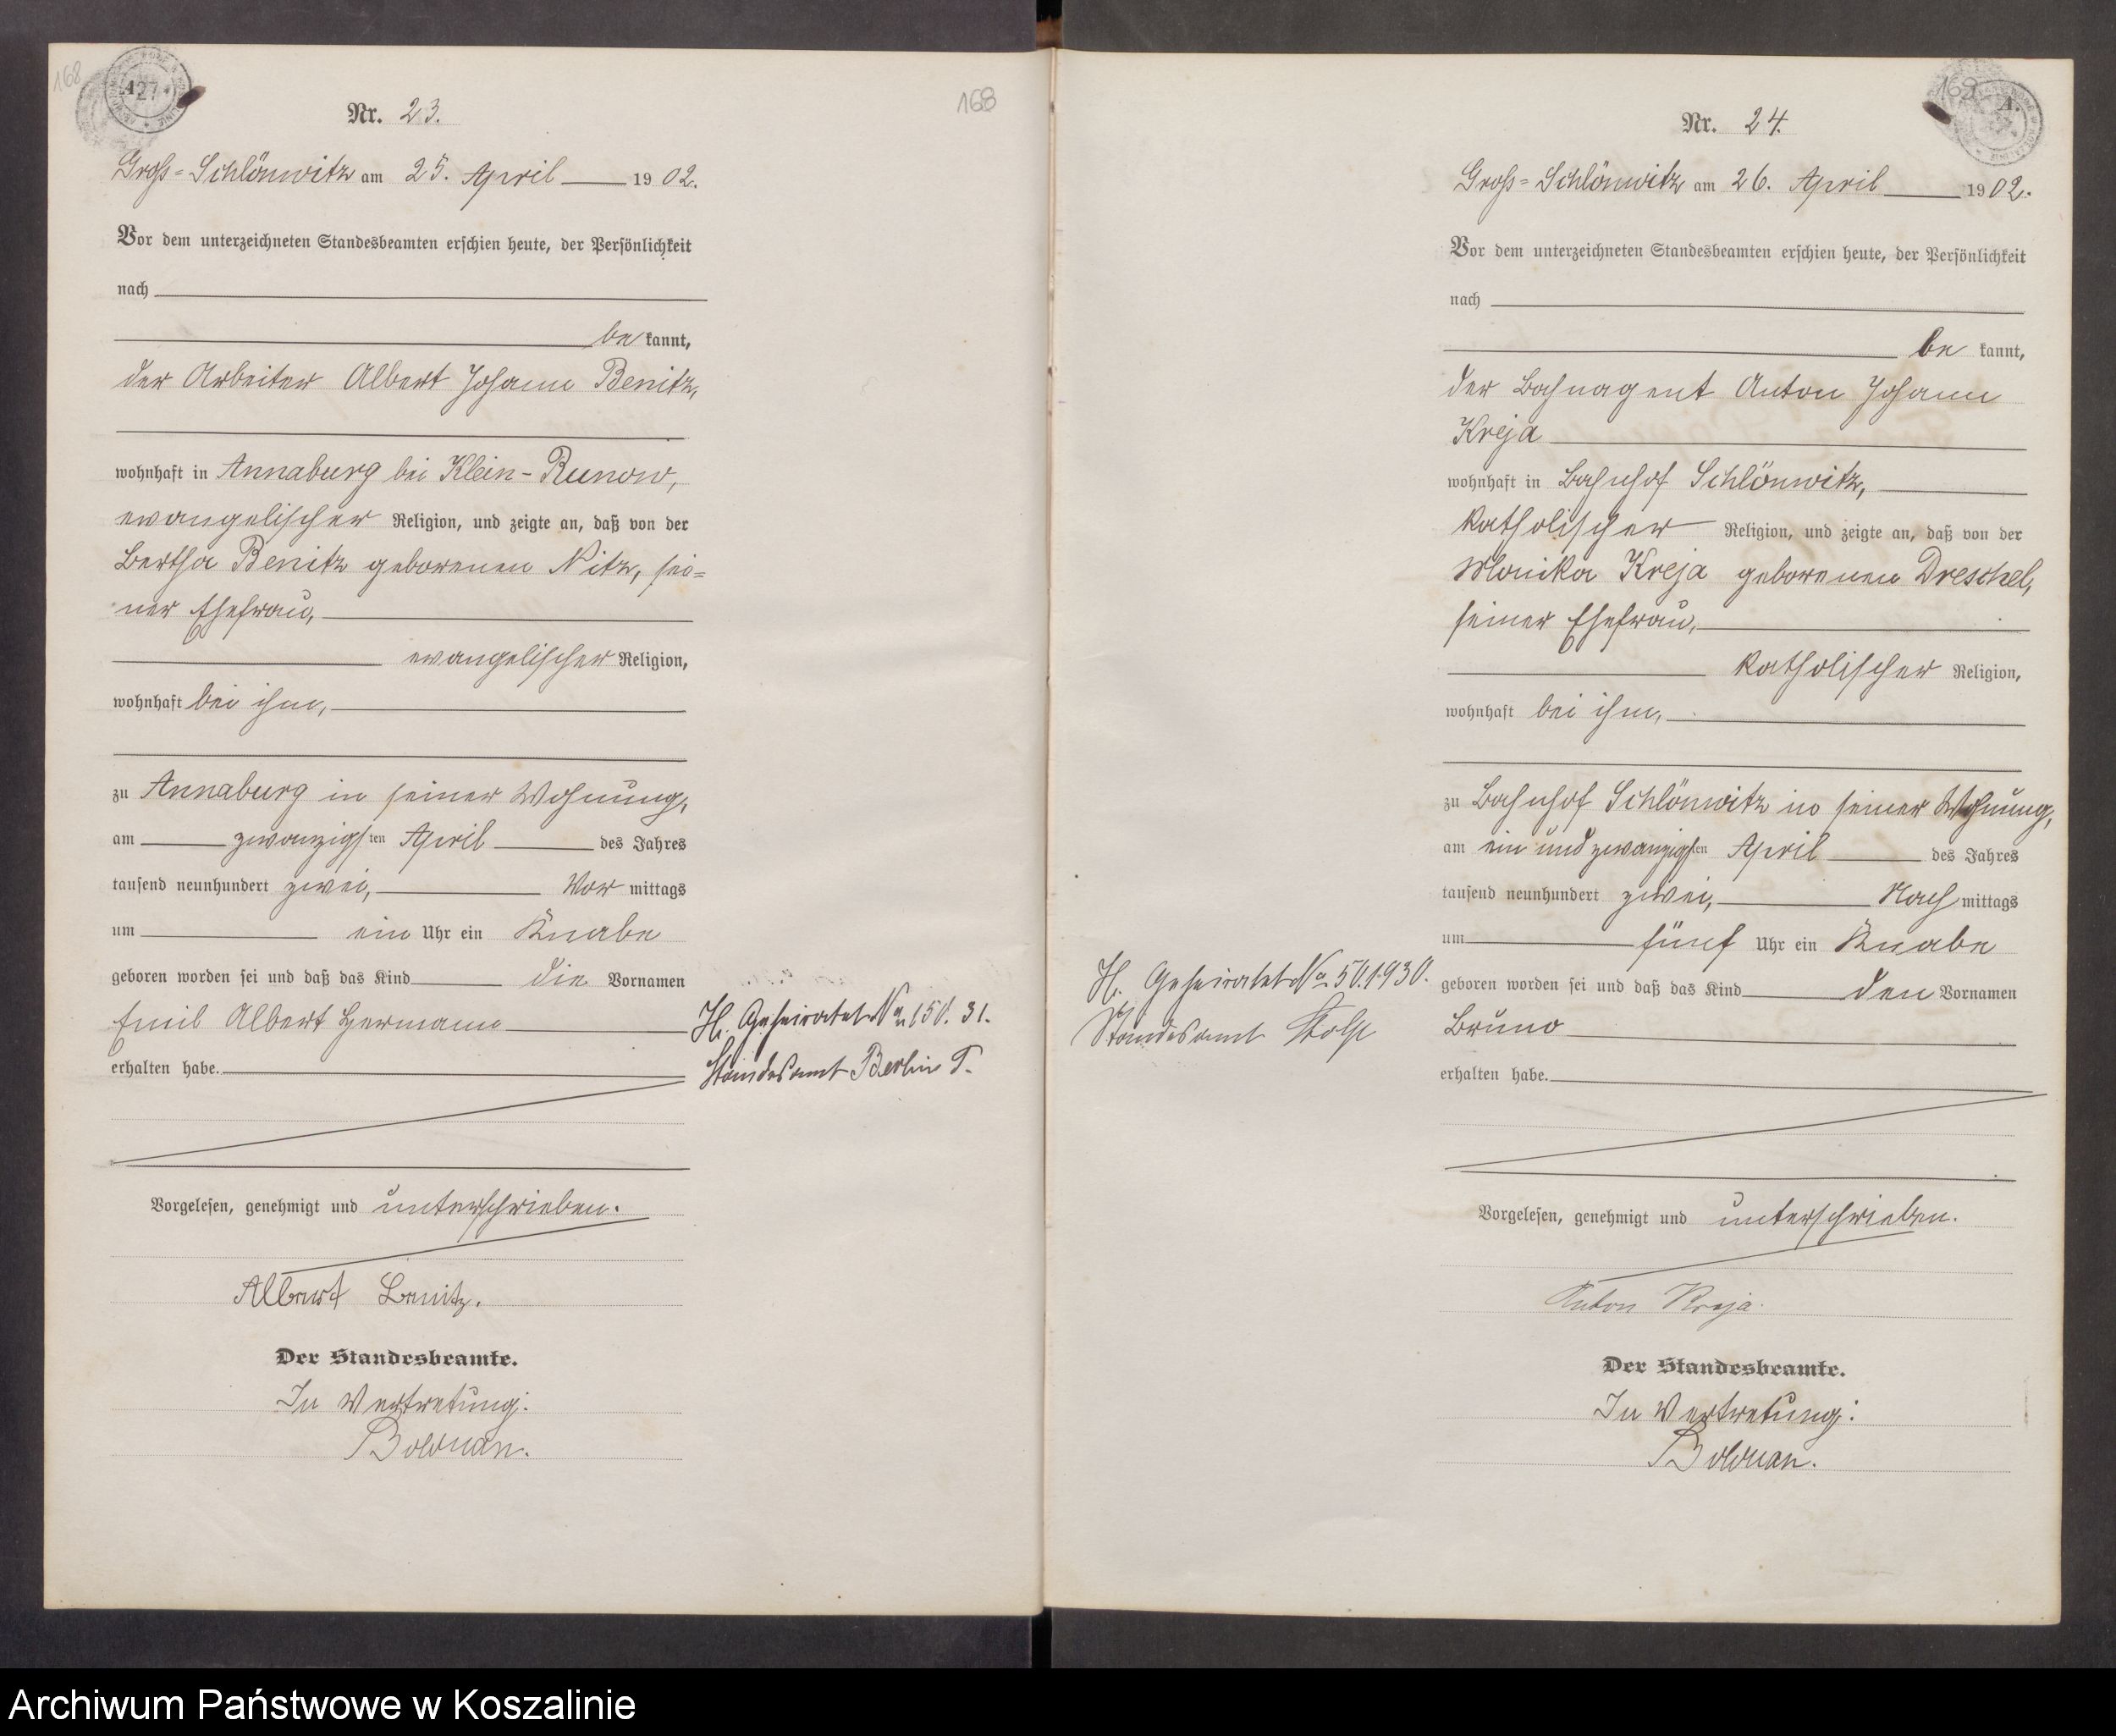 168
127
Nr. 23.
Groß-Schlönwitz am 25. April 1902.
Vor dem unterzeichneten Standesbeamten erschien heute, der Persönlichkeit
nach
be kannt,
der Arbeiter Albert Johann Benitz,
wohnhaft in Annaburg bei Klein-Runow,
evangelischer Religion, und zeigte an, daß von der
Bertha Benitz geborenen Nitz, sei=
ner Ehefrau,
evangelischer Religion,
wohnhaft bei ihm,
zu Annaburg in seiner Wohnung,
am zwanzigsten April des Jahres
tausend neunhundert zwei, Vor mittags
um ein Uhr ein Knabe
geboren worden sei und daß das Kind die Vornamen
Emil Albert Hermann
erhalten habe.
Vorgelesen, genehmigt und unterschrieben.
Albert Benitz.
Der Standesbeamte.
In Vertretung:
Bolduan.
168
H. Geheiratet No 150. 31.
Standesamt Berlin
Nr. 24.
Groß-Schlönwitz am 26. April 1902.
Vor dem unterzeichneten Standesbeamten erschien heute, der Persönlichkeit
nach
be kannt,
der Bahnagent Anton Johann
Kreja
wohnhaft in Bahnhof Schlönwitz,
katholischer Religion, und zeigte an, daß von der
Monika Kreja geborenen Dreschel,
seiner Ehefrau,
katholischer Religion,
wohnhaft bei ihm,
zu Bahnhof Schlönwitz in seiner Wohnung,
am ein und zwanzigsten April des Jahres
tausend neunhundert zwei, Nach mittags
um fünf Uhr ein Knabe
geboren worden sei und daß das Kind den Vornamen
Bruno
erhalten habe.
Vorgelesen, genehmigt und unterschrieben.
Anton Kreja.
Der Standesbeamte.
In Vertretung:
Bolduan.
H. Geheiratet No 50. 1930.
Standesamt Stolp
Archiwum Państwowe w Koszalinie